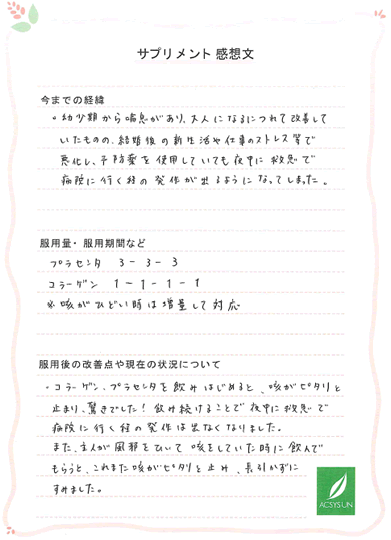 サプリメント 感想文
今までの経緯
。幼少期から喘息があり、大人になるにつれて改善して
いたものの、結婚後の新生活や仕事のストレス等で
悪化し、予防薬を使用していても夜中に救急で
病院に行く程の発作が出るようになってしまった。
服用量・服用期間など
プラセンタ 3 - 3 - 3
コラーゲン 1 - 1 - 1 - 1
※咳がひどい時は増量して対応
服用後の改善点や現在の状況について
・コラーゲン、プラセンタを飲みはじめると、咳がピタリと
止まり、驚きでした！飲み続けることで夜中に救急で
病院に行く程の発作は出なくなりました。
また、主人が風邪をひいて咳をしていた時に飲んで
もらうと、これまた咳がピタリと止み、長引かずに
すみました。
ACSYSUN